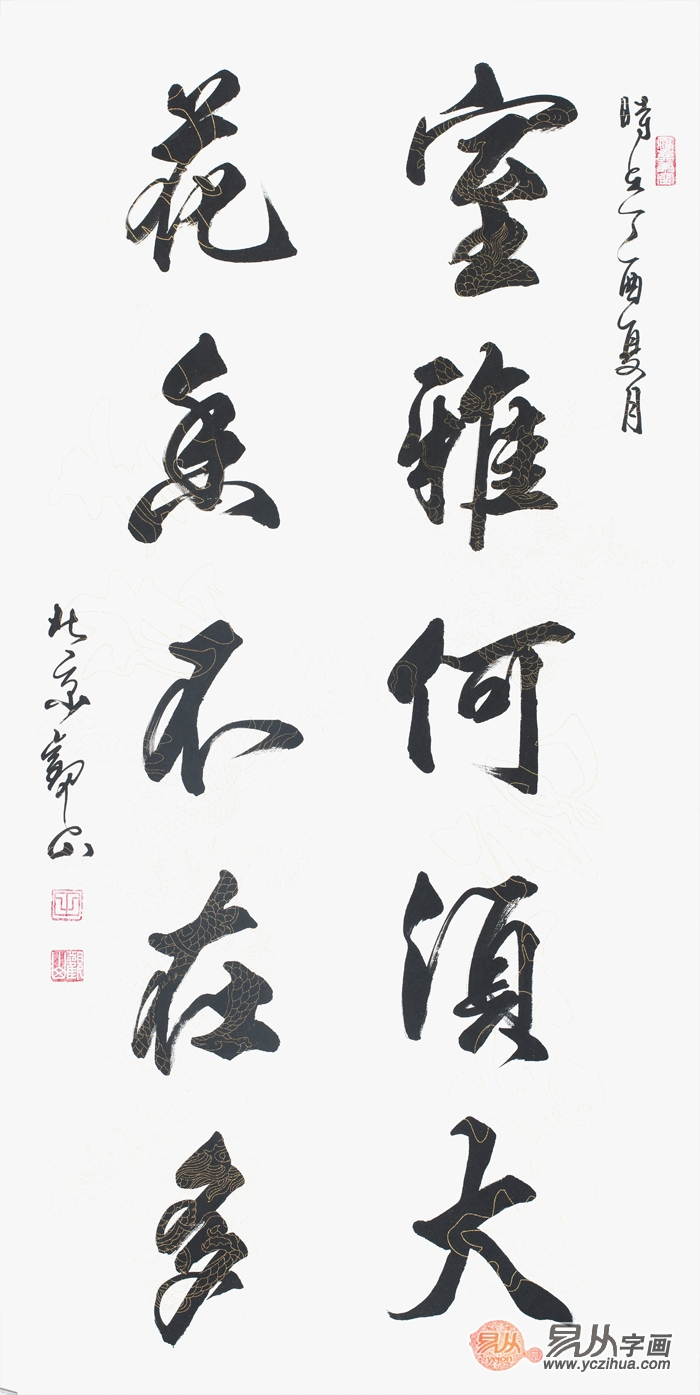 時在丁酉夏月
室雅何須大
花香不在多
北京觀山
易从
yicyon
易从字画
www.yczihua.com